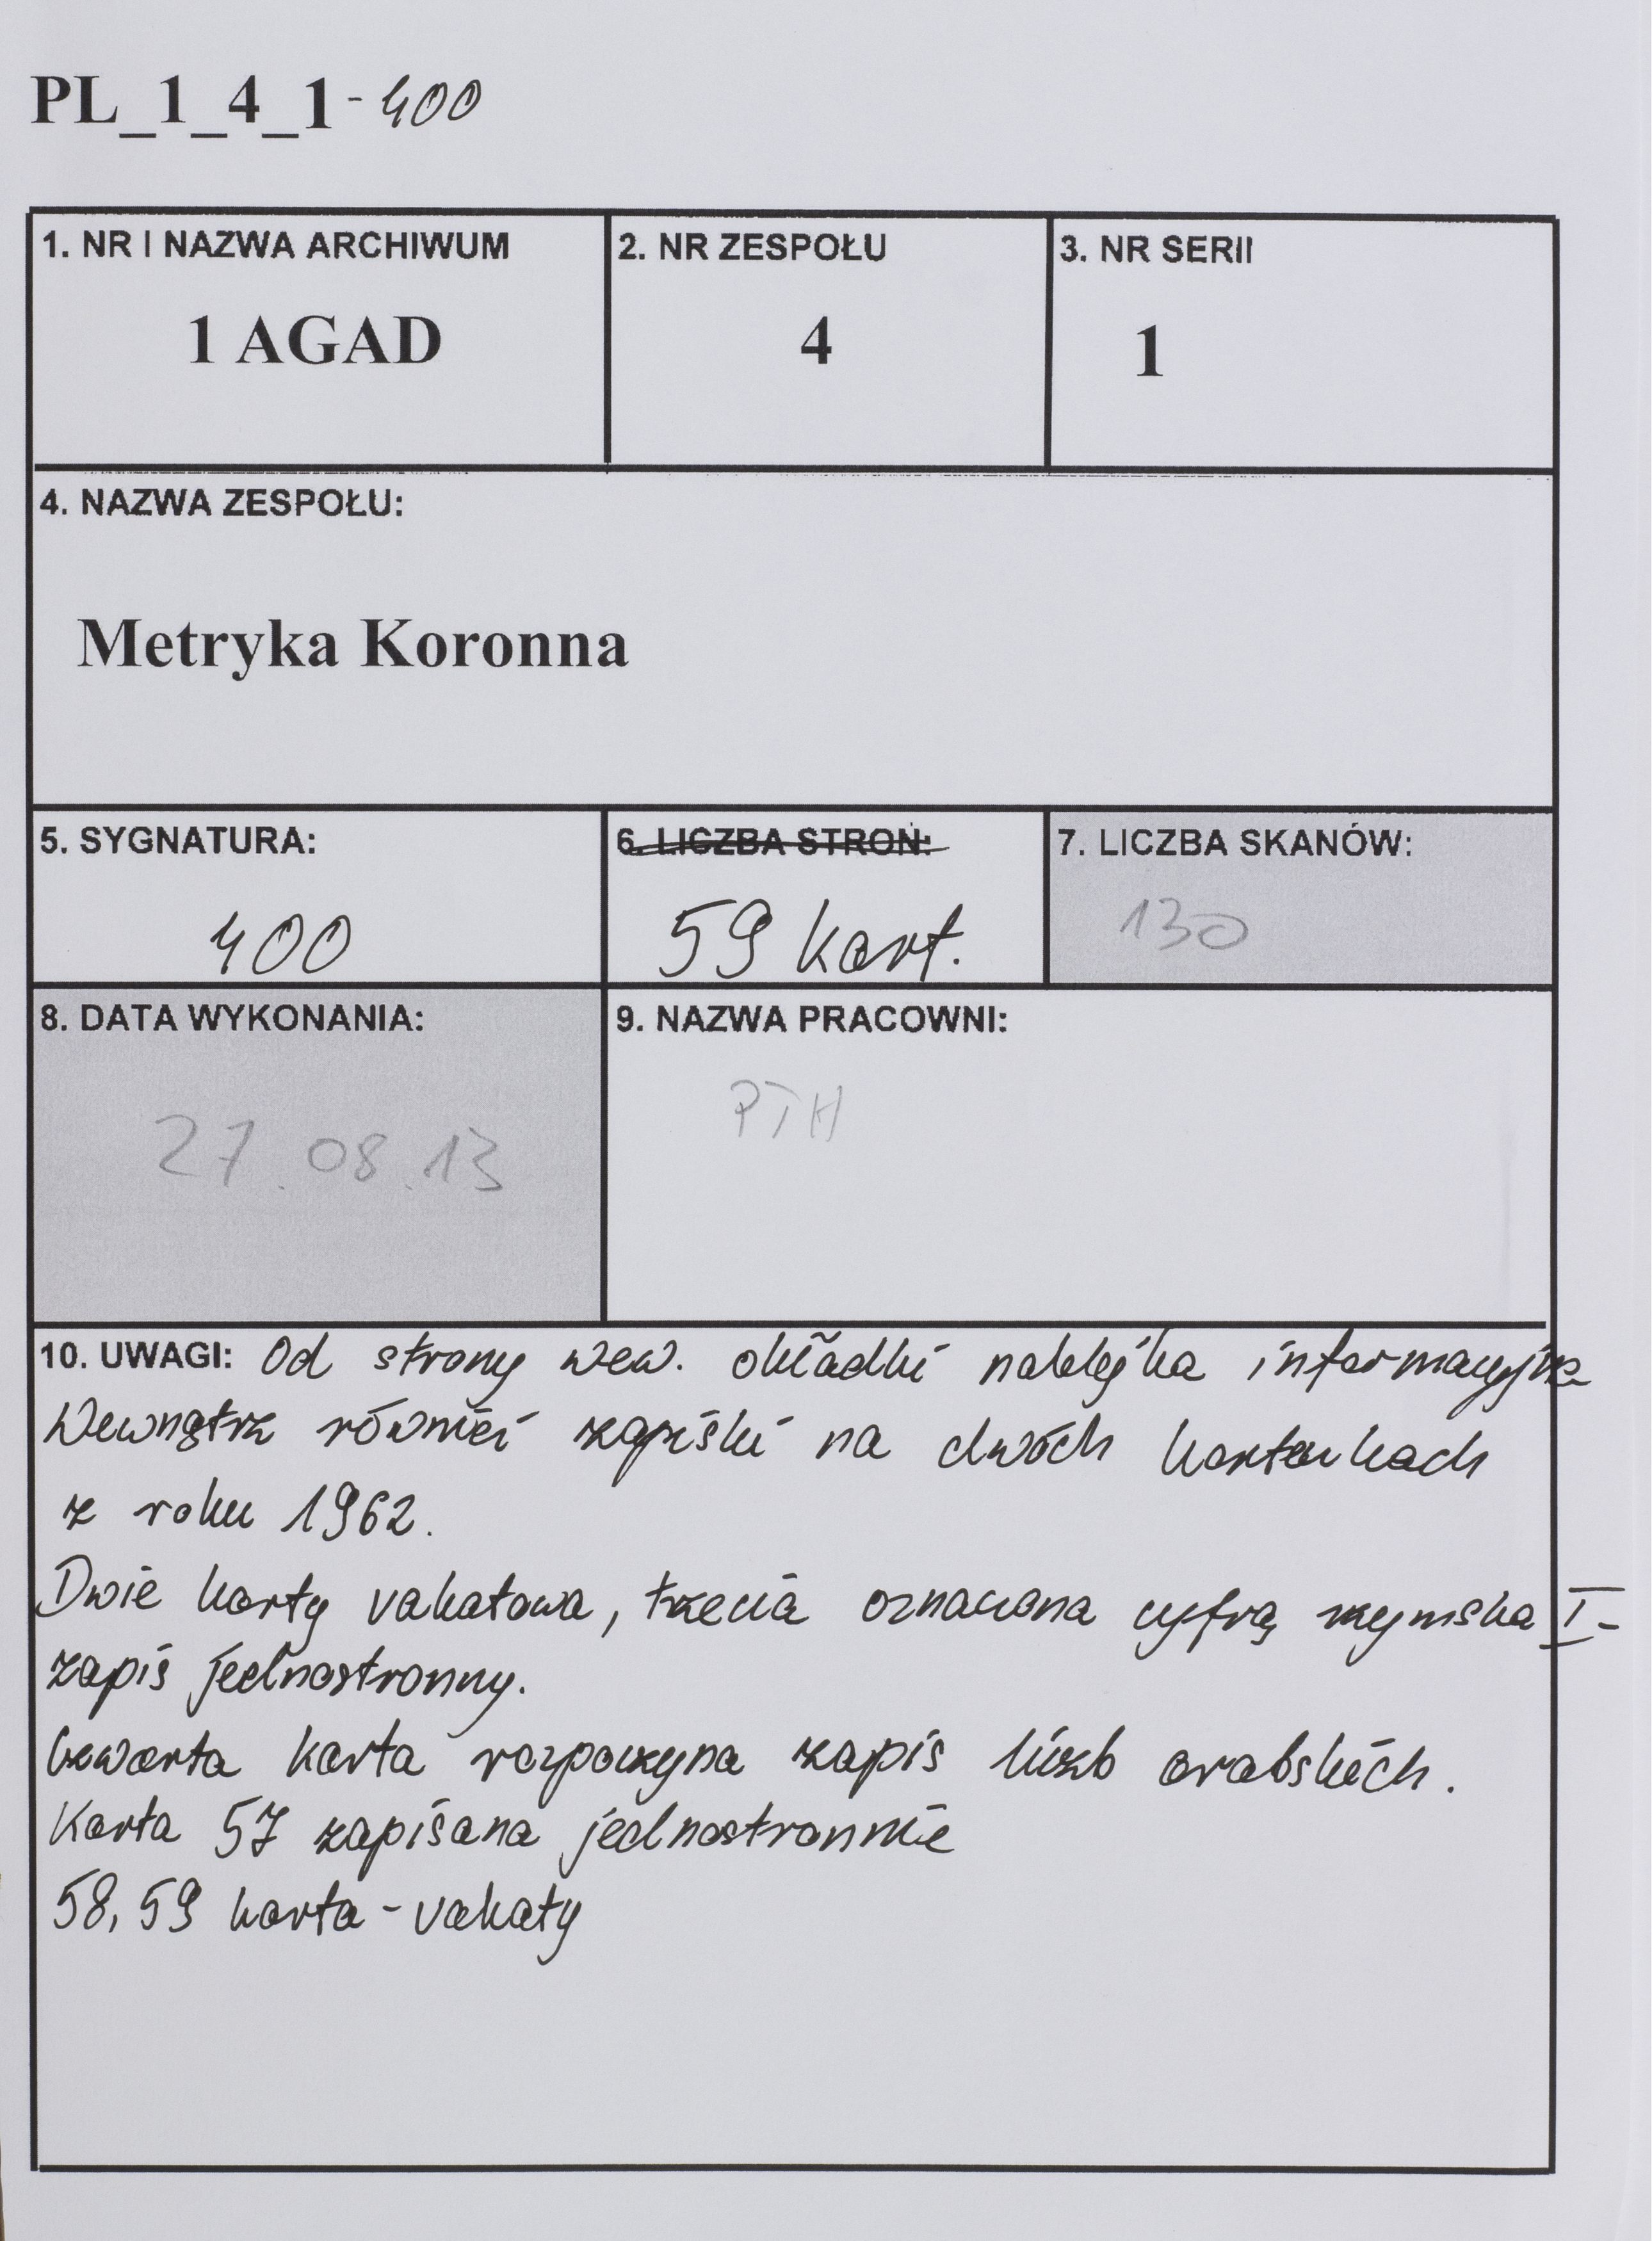 PL_1_4_1-400
1. NR I NAZWA ARCHIWUM
1 AGAD
2. NR ZESPOŁU
4
3. NR SERII
1
4. NAZWA ZESPOŁU:
Metryka Koronna
5. SYGNATURA:
400
6. LICZBA STRON:
59 kart.
7. LICZBA SKANÓW:
130
8. DATA WYKONANIA:
27.08.13
9. NAZWA PRACOWNI:
PTH
10. UWAGI: Od strony wew. okładki naklejka informacyjna
Wewnątrz również zapiski na dwóch kartankach
z roku 1962.
Dwie karty vakatowa, trzecia oznaczona cyfrą rzymska I-
zapis jednostronny.
Czwarta karta rozpoczyna zapis liczb arabskich.
Karta 57 zapisana jednostronnie
58, 59 karta - vakaty